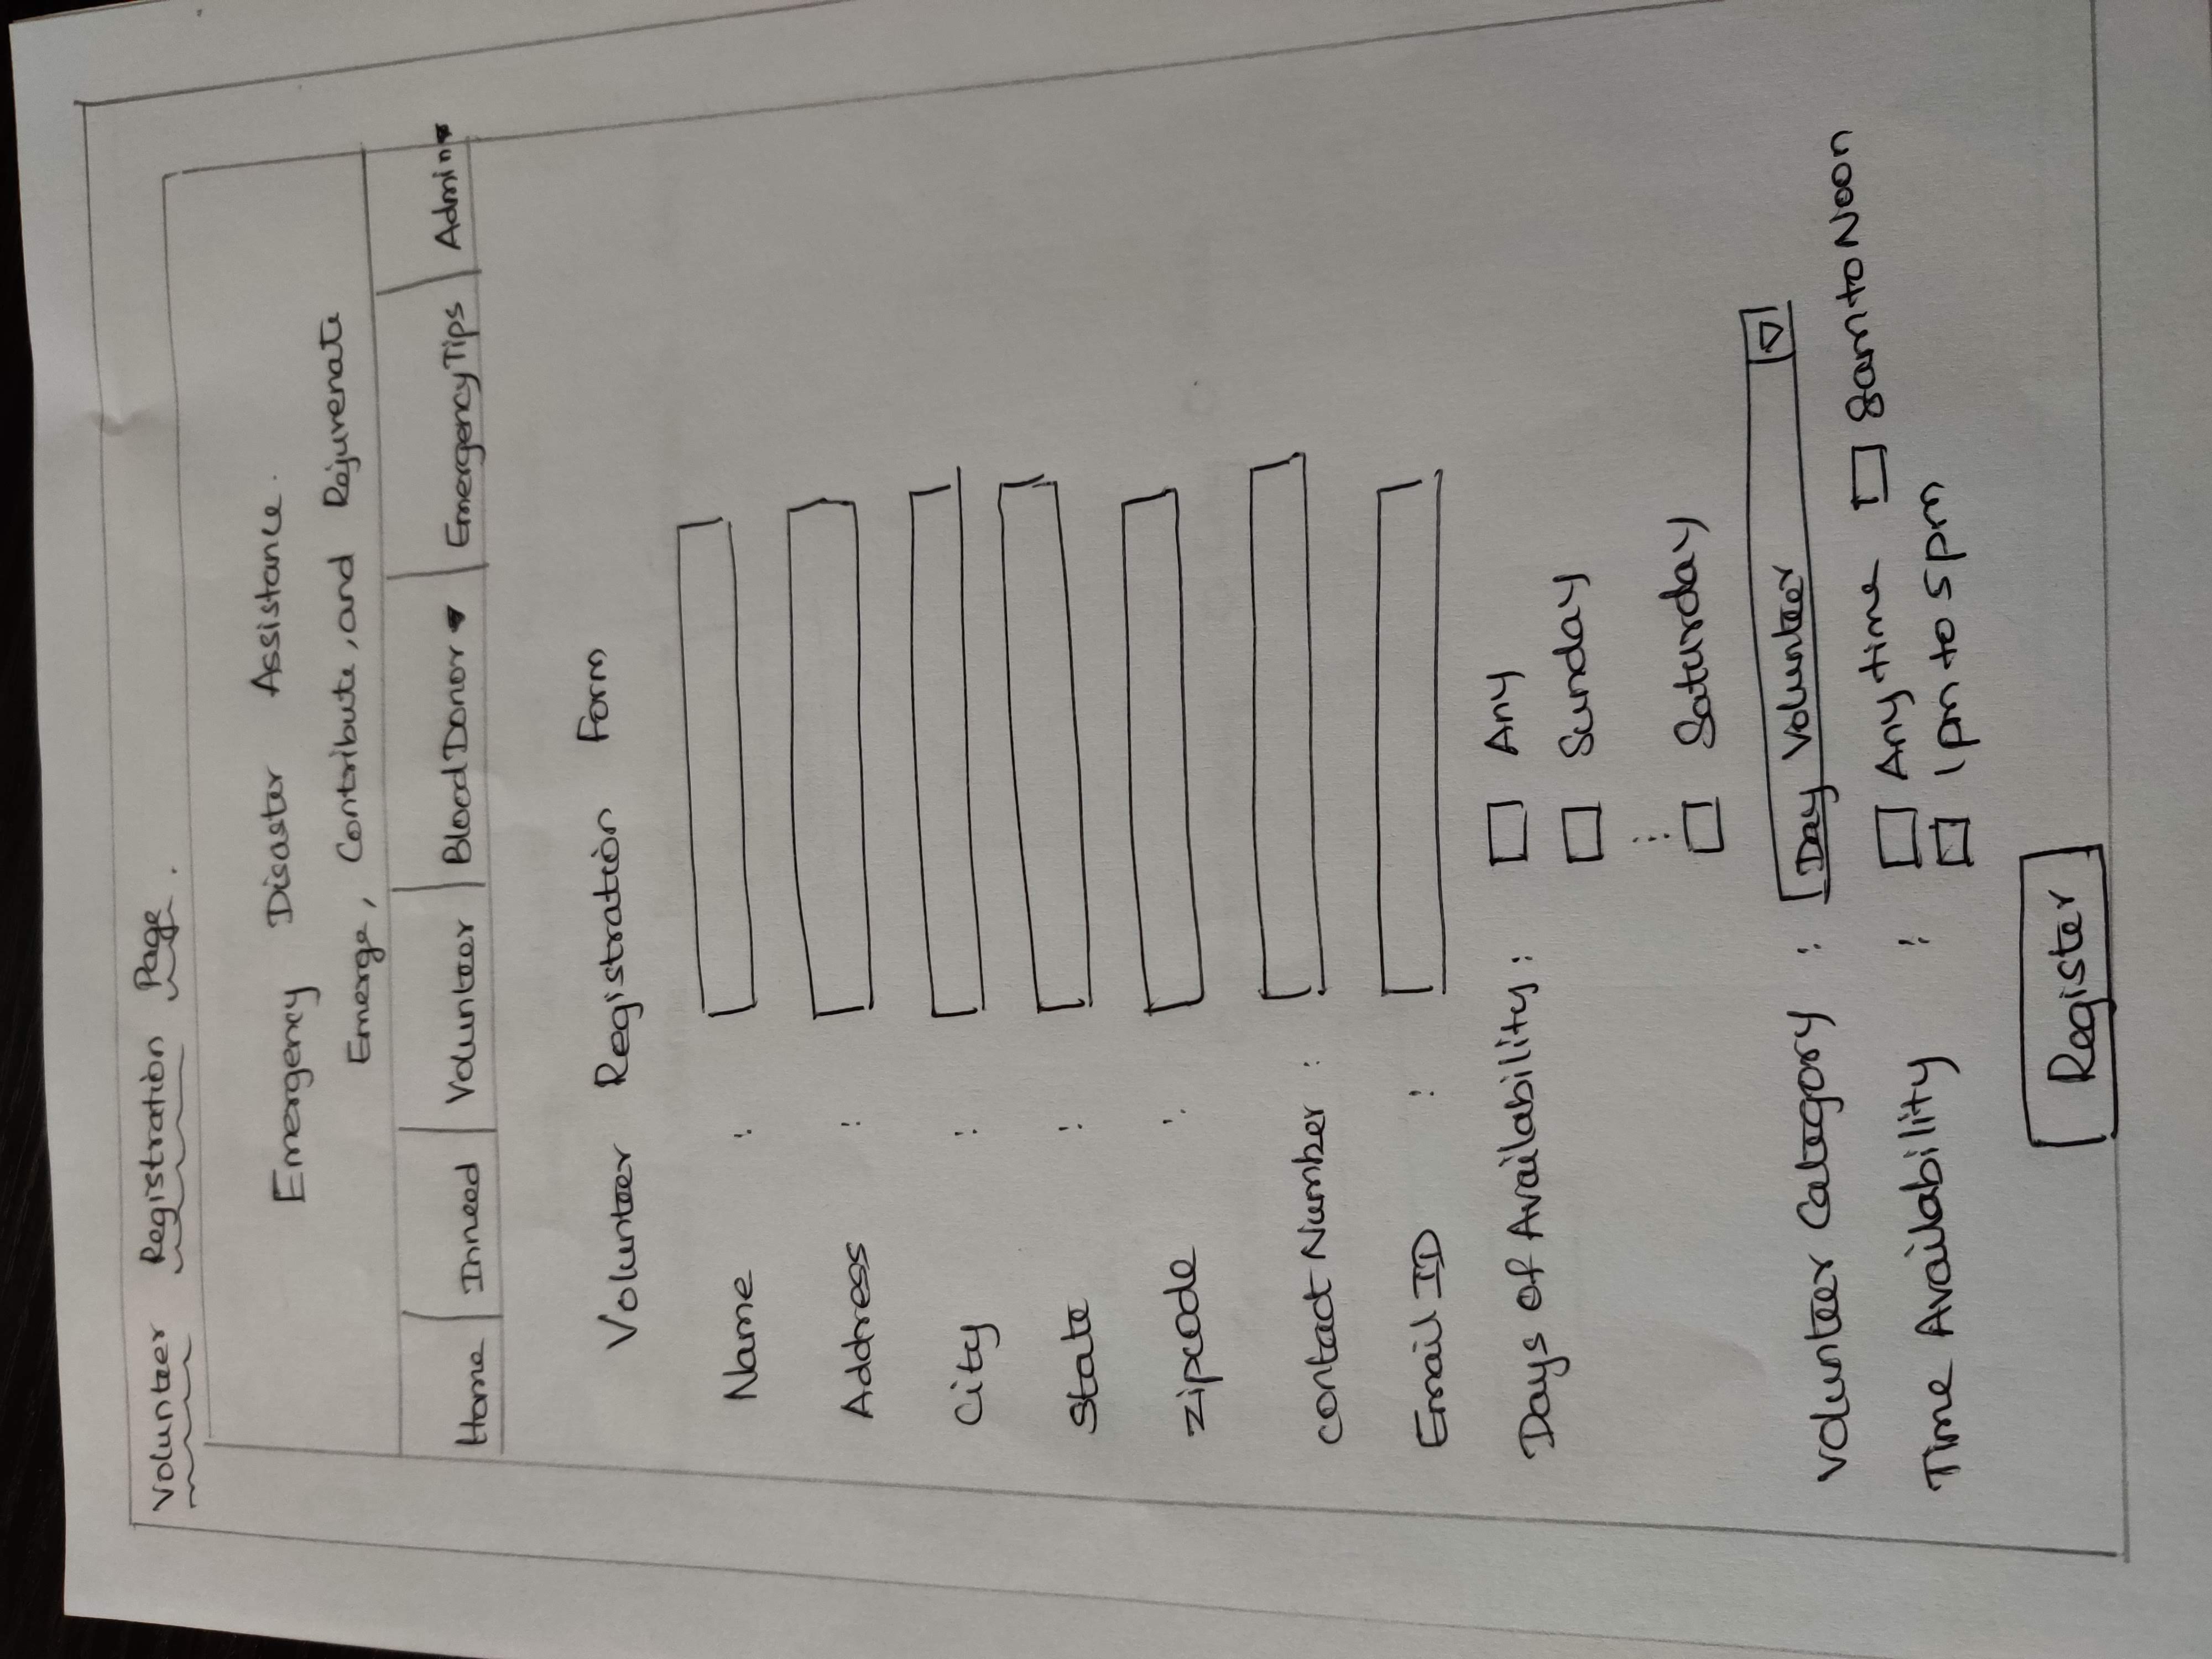 Volunteer Registration Page.
Emergency Disaster Assistance.
Emerge, Contribute, and Rejuvenate
Home Inneed Volunteer BloodDonor EmergencyTips Admin
Volunteer Registration Form
Name :
Address :
City :
State :
zipcode :
contact Number :
Email ID :
Days of Availability : Any
Sunday
⋮
Saturday
Volunteer Category : Day Volunteer
Time Availability : Any time 8am to Noon
1pm to 5pm
Register